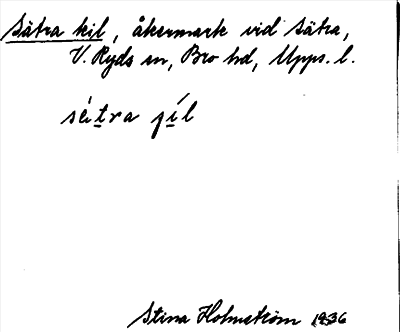 Sätra kil, åkermark vid Sätra,
V. Ryds sn, Bro hd, Upps. l.
sétra χíl
Stina Holmström 1936